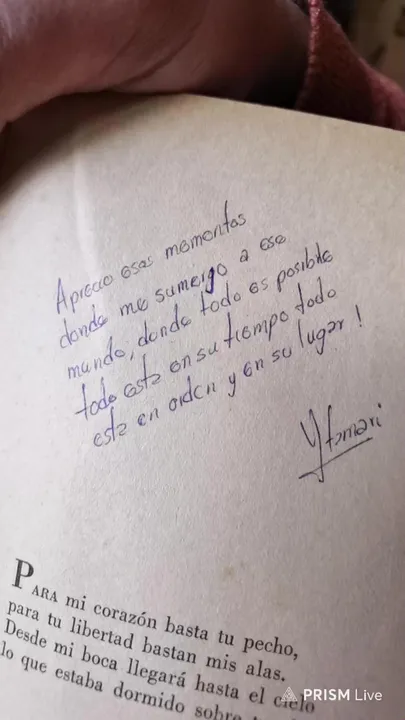 Aprecio esos momentos
donde me sumerjo a ese
mundo, donde todo es posible
todo esta en su tiempo todo
esta en orden y en su lugar!
Ytamari
PARA mi corazón basta tu pecho,
para tu libertad bastan mis alas.
Desde mi boca llegará hasta el cielo
lo que estaba dormido sobre
PRISM Live